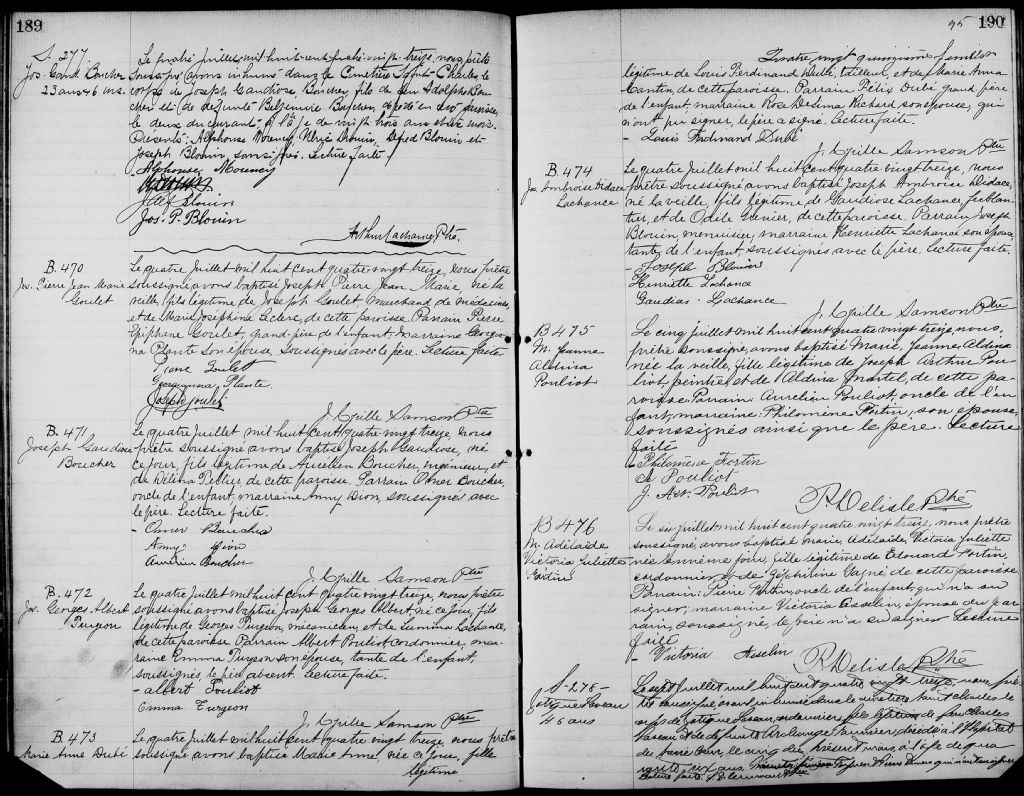 189
S. 277
Jos. Gaud. Boucher
23 ans & 6 ms.
Le quatre Juillet mil huit cent quatre-vingt treize, nous prêtre
soussigné avons inhumé dans le Cimetière Saint-Charles le
corps de Joseph Gaudiose Boucher, fils de feu Adolphe Bou
cher et de défunte Belzemire Boucher, décédé en cette paroisse
le deux du courant à l'âge de vingt trois ans et six mois.
Présents: Alphonse Drouin, Alfred Blouin et
Joseph Blouin, soussignés. Lecture faite.
Alphonse
Blouin
Jos. P. Blouin
Arthur Lachance, Ptre.
B. 470
Jos. Pierre Jean Marie
Goulet
Le quatre Juillet mil huit cent quatre-vingt treize, nous prêtre
soussigné avons baptisé Joseph Pierre Jean Marie, né la
veille, fils légitime de Joseph Goulet, Marchand de médecines,
et de Marie Joséphine Leclerc, de cette paroisse. Parrain Pierre
Epiphane Goulet, grand-père de l'enfant, marraine Georgian
na Plante son épouse, soussignés avec le père. Lecture faite
Pierre Goulet
Georgianna Plante
Joseph Goulet
J. Cyrille Samson Ptre
B. 471
Joseph Gaudiose
Boucher
Le quatre Juillet mil huit cent quatre-vingt treize, nous
prêtre soussigné avons baptisé Joseph Gaudiose, né
ce jour, fils légitime de Aurelien Boucher, ingénieur, et
de Délina Pellier, de cette paroisse. Parrain Omer Boucher,
oncle de l'enfant, marraine Anny Dion, soussignés avec
le père. Lecture faite.
- Omer Boucher
Anny Dion
Aurelien Boucher
J. Cyrille Samson Ptre
B. 472
Jos. Georges Albert
Turgeon
Le quatre Juillet mil huit cent quatre vingt treize, nous prêtre
soussigné avons baptisé Joseph Georges Albert né ce jour, fils
légitime de Georges Turgeon, mécanicien, et de Lumina Lachance,
de cette paroisse. Parrain Albert Pouliot, cordonnier, mar
raine Emma Turgeon son épouse, tante de l'enfant,
soussignés, le père absent. Lecture faite.
- Albert Pouliot
Emma Turgeon
J. Cyrille Samson Ptre
B. 473
Marie Anna Dubé
Le quatre Juillet mil huit cent quatre vingt treize, nous prêtre
soussigné avons baptisé Marie Anna, née ce jour, fille
légitime
95 190
Quatre vingt quinzième feuillet
légitime de Louis Ferdinand Dubé, tailleur, et de Marie Anna
Cantin, de cette paroisse. Parrain Félix Dubé grand père
de l'enfant, marraine Rose Desima Richard son épouse, qui
n'ont pu signer, le père a signé. Lecture faite.
- Louis Ferdinand Dubé
J. Cyrille Samson Ptre
B. 474
Jos. Ambroise Didace
Lachance
Le quatre Juillet mil huit cent quatre vingt treize, nous
prêtre soussigné avons baptisé Joseph Ambroise Didace,
né la veille, fils légitime de Gaudiose Lachance, ferblan-
tier, et de Odile Grenier, de cette paroisse. Parrain Joseph
Blouin menuisier, marraine Henriette Lachance son épouse
tante de l'enfant, soussignés avec le père. Lecture faite.
- Joseph Blouin
Henriette Lachance
Gaudias Lachance
J. Cyrille Samson Ptre
B 475
M. Jeanne
Aldina
Pouliot
Le cinq juillet mil huit cent quatre vingt treize, nous,
prêtre soussigné, avons baptisé Marie, Jeanne, Aldina
née la veille, fille légitime de Joseph Arthur Pou-
liot, peintre, et de Aldina Martel, de cette pa-
roisse. Parrain: Aurelien Pouliot, oncle de l'en
fant, marraine: Philomène Fortin, son épouse
soussignés ainsi que le père. Lecture
faite
- Philomène Fortin
A Pouliot
J. Art. Pouliot
R. Delisle Ptre
B 476
M. Adélaide
Victoria Juliette
Fortin
Le six juillet mil huit cent quatre vingt treize, nous prêtre
soussigné, avons baptisé Marie, Adélaide, Victoria Juliette
née le même jour, fille légitime de Edouard Fortin,
cordonnier, et de Zéphirine Gagné, de cette paroisse
Parrain: Pierre Fortin, oncle de l'enfant, qui n'a su
signer, marraine Victoria Asselin, épouse du par
rain, soussignée, le père n'a su signer. Lecture
faite
- Victoria Asselin
R. Delisle Ptre
S-278-
46 ans
Le sept Juillet mil huit cent quatre vingt treize, nous prê
tre soussigné, avons inhumé dans le cimetière Saint Charles le
corps de cordonnier, fils légitime de feu Charles
et de défunte Archange décédé à l'Hôpital
du Sacré Cœur, le cinq du présent mois, à l'âge de qua
rante six ans
Lecture faite.